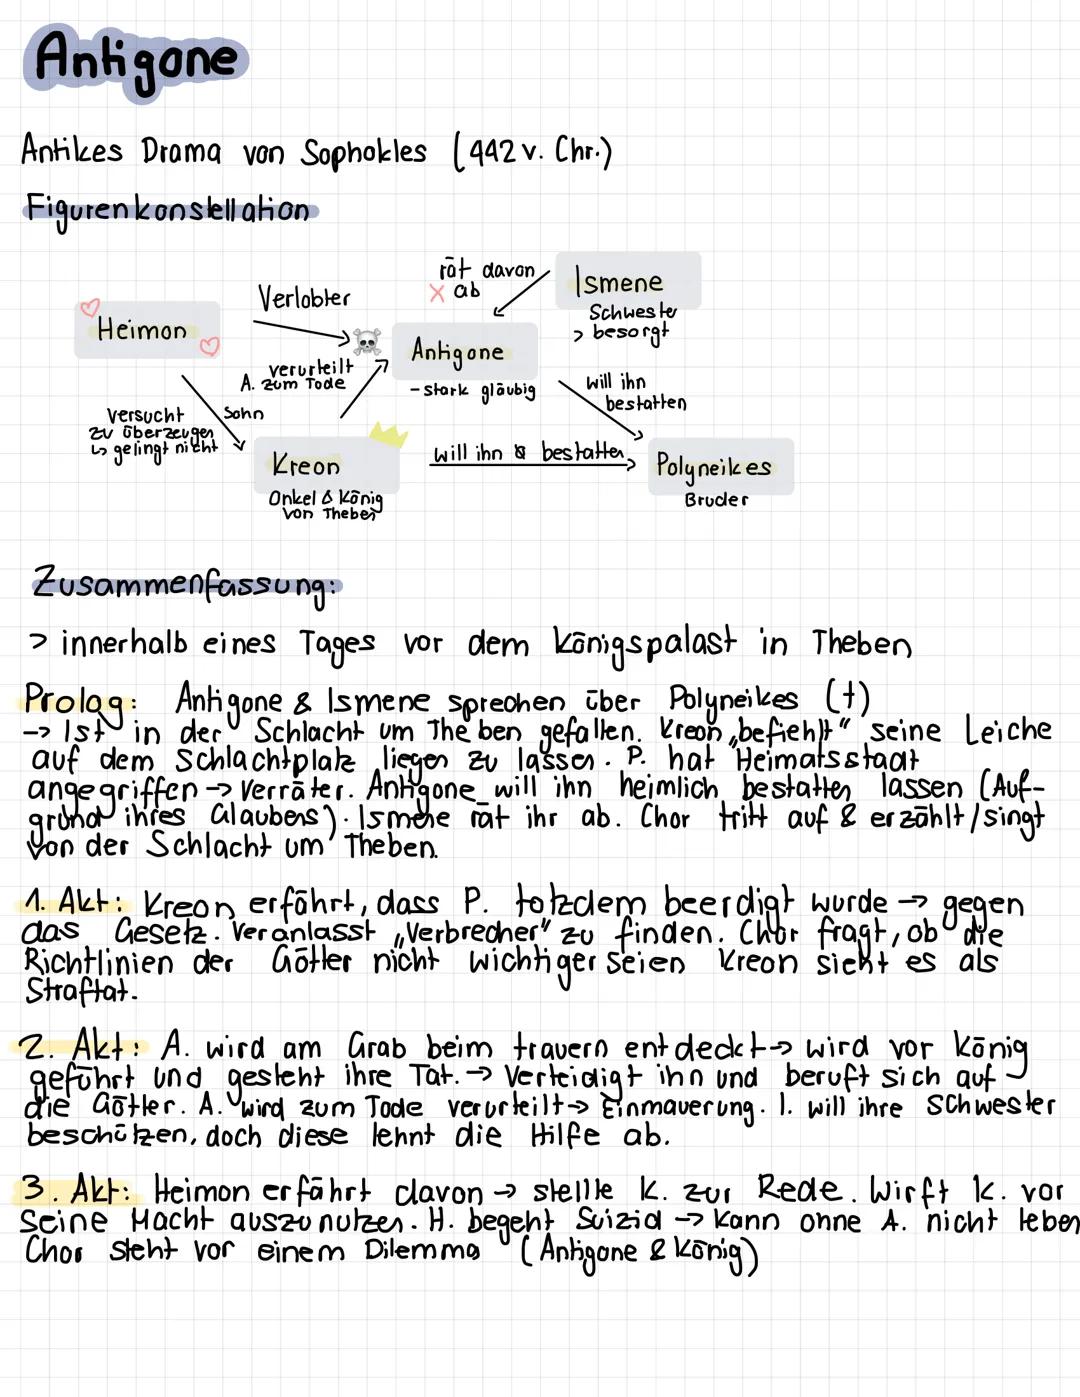 Antigone
Antikes Drama von Sophokles (442 v. Chr.)
Figurenkonstellation
Heimon
Verlobter
rät davon
X ab
Ismene
Schwester
> besorgt
Antigone
- stark gläubig
verurteilt
A. zum Tode
will ihn
bestatten
versucht
zu überzeugen
↳ gelingt nicht
Sohn
Kreon
Onkel & König
von Theben
will ihn bestatten
Polyneikes
Bruder
Zusammenfassung:
> innerhalb eines Tages vor dem Königspalast in Theben
Prolog: Antigone & Ismene sprechen über Polyneikes (†)
-> Ist in der Schlacht um Theben gefallen. Kreon „befiehlt“ seine Leiche
auf dem Schlachtplatz liegen zu lassen. P. hat Heimatsstadt
angegriffen -> Verräter. Antigone will ihn heimlich bestatten lassen (Auf-
grund ihres Glaubens). Ismene rät ihr ab. Chor tritt auf & erzählt/singt
von der Schlacht um Theben.
1. Akt: Kreon erfährt, dass P. totzdem beerdigt wurde -> gegen
das Gesetz. Veranlasst „Verbrecher“ zu finden. Chor fragt, ob die
Richtlinien der Götter nicht wichtiger seien Kreon sieht es als
Straftat.
2. Akt: A. wird am Grab beim trauern entdeckt -> wird vor König
geführt und gesteht ihre Tat. -> Verteidigt ihn und beruft sich auf
die Götter. A. wird zum Tode verurteilt -> Einmauerung. I. will ihre Schwester
beschützen, doch diese lehnt die Hilfe ab.
3. Akt: Heimon erfährt davon -> stellte K. zur Rede. Wirft K. vor
seine Macht auszunutzen. H. begeht Suizid -> kann ohne A. nicht leben
Chor steht vor einem Dilemma (Antigone & König)